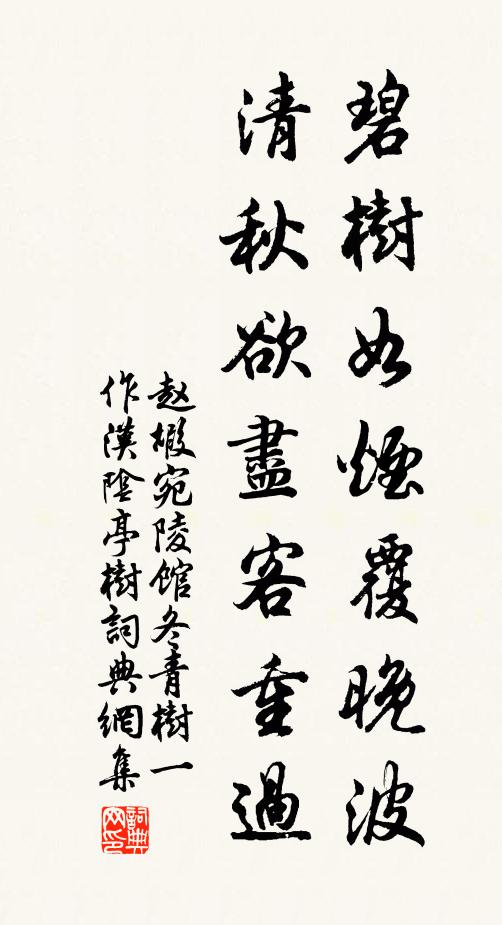 碧樹如煙覆晚波
清秋欲盡客重過
赵嘏宛陵館冬青樹一
作漢陰亭樹詞典網集
詞典
网印